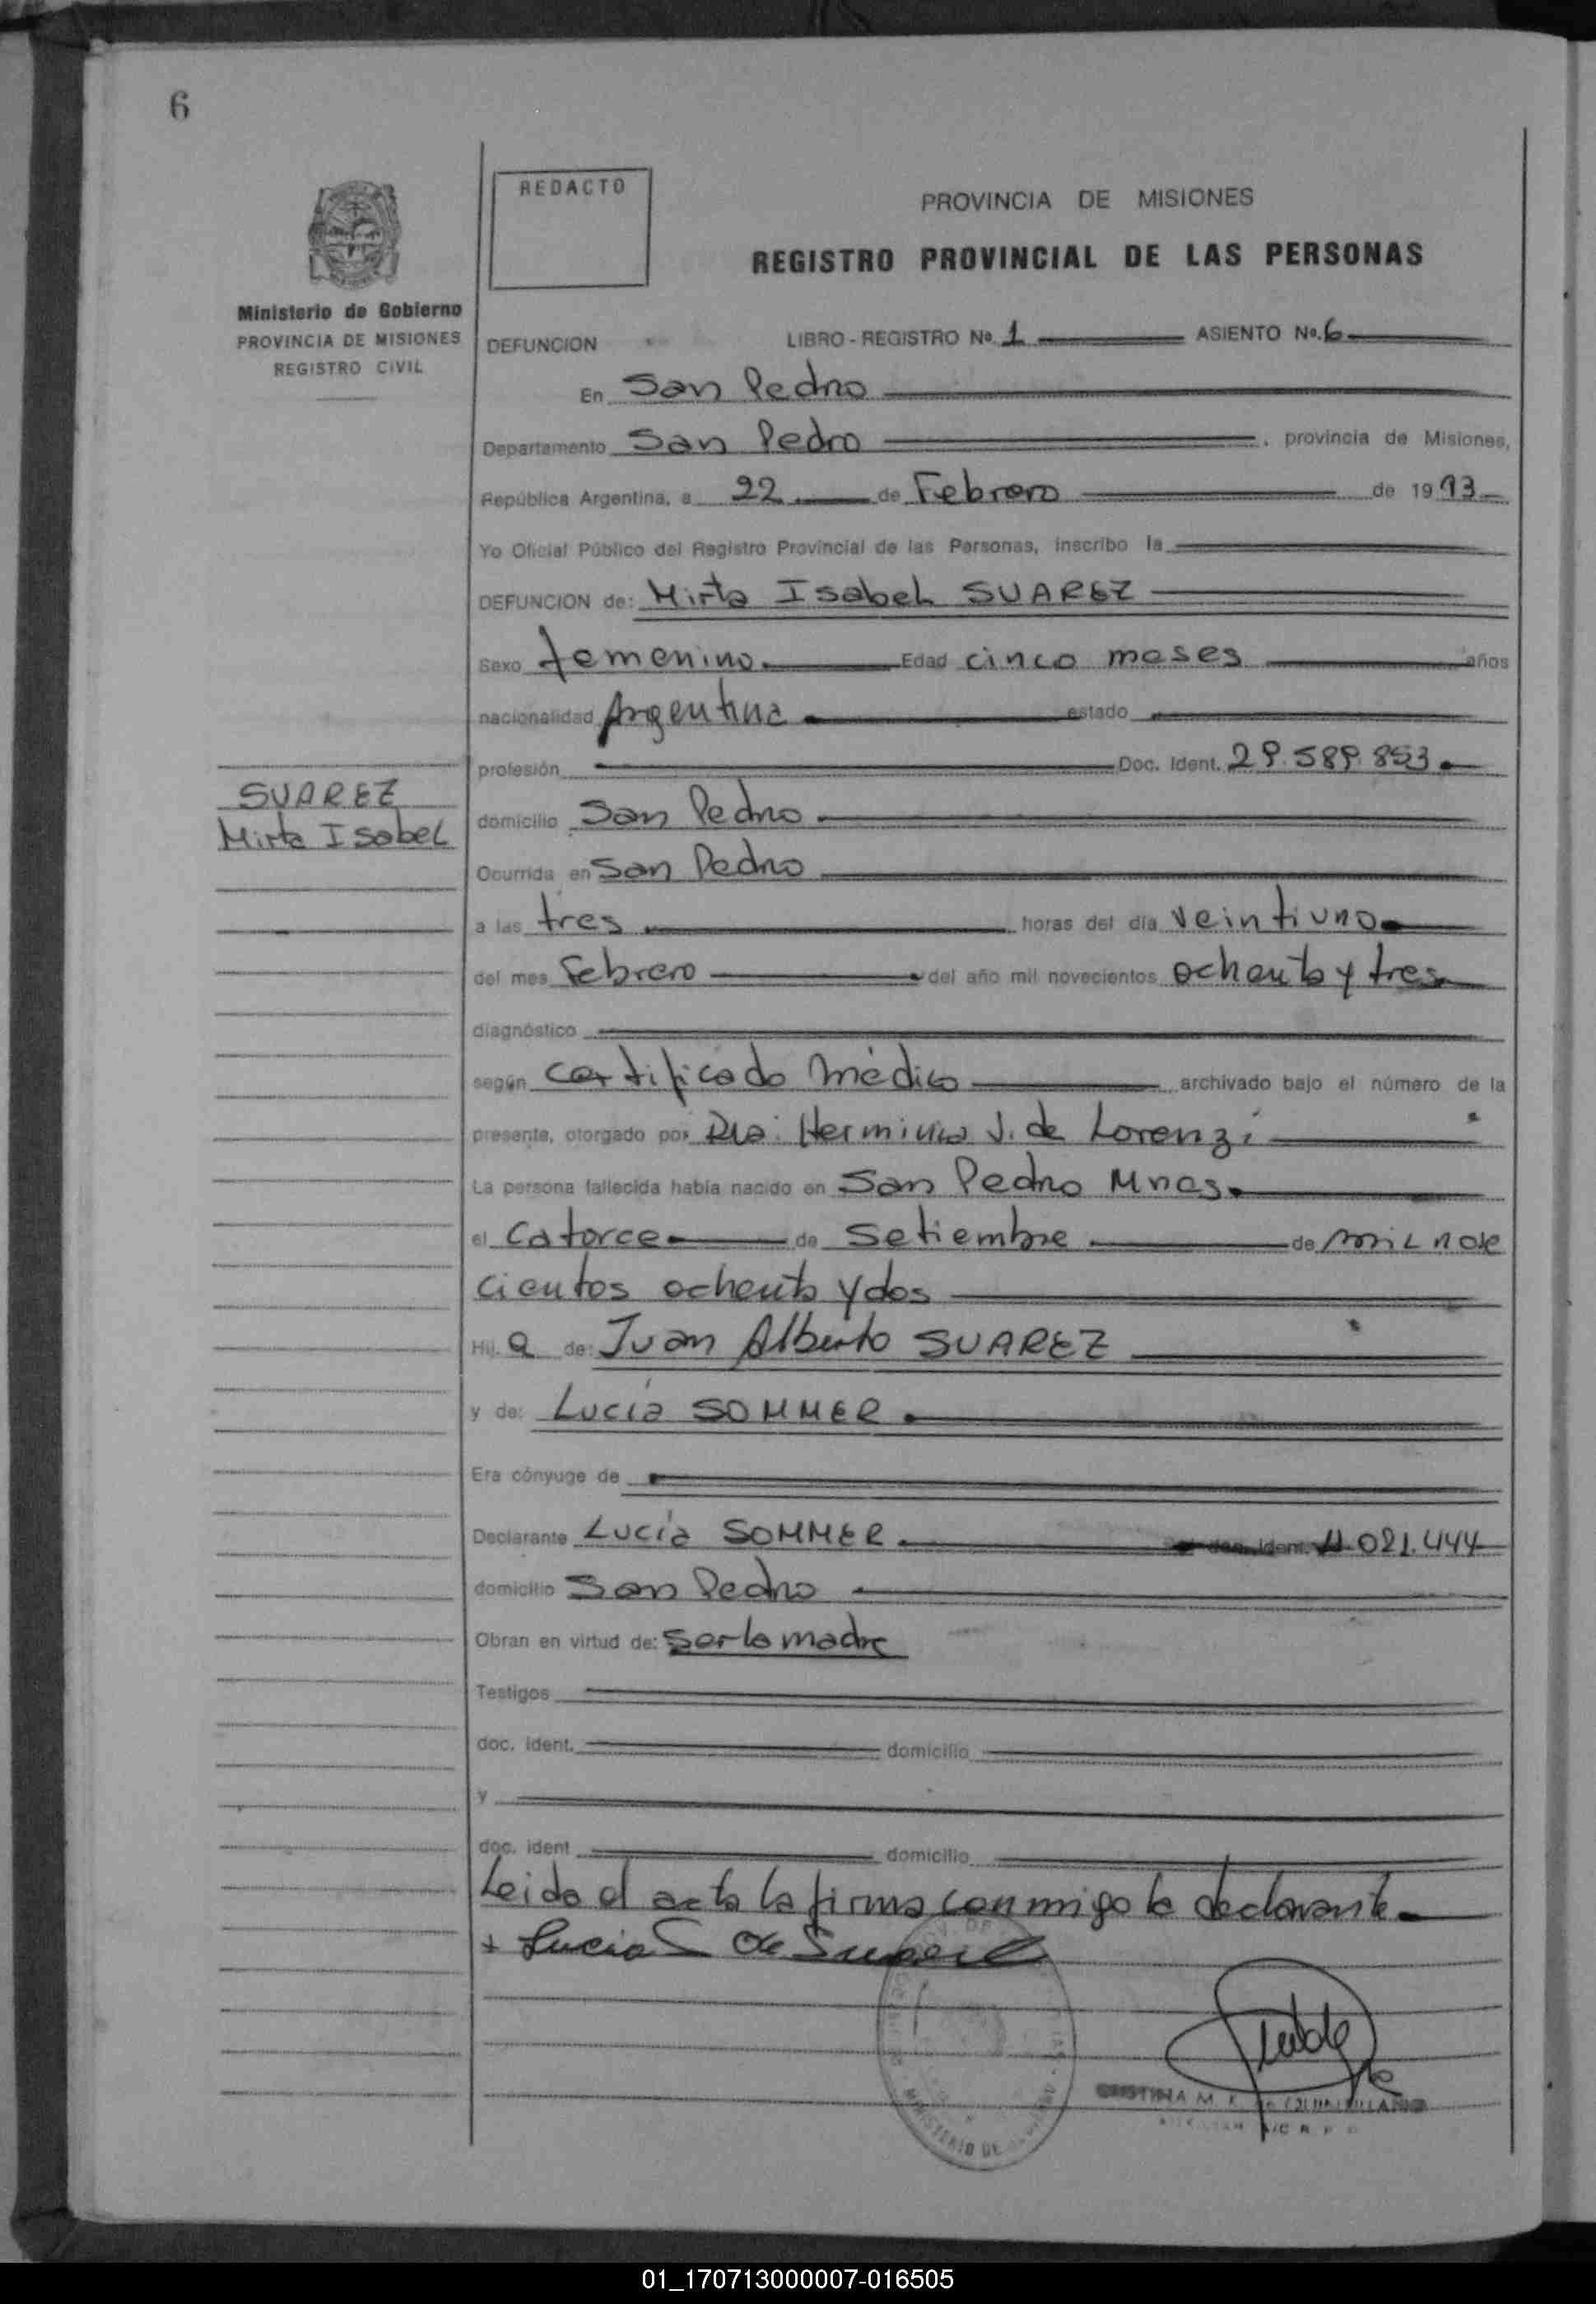 6
REDACTO
PROVINCIA DE MISIONES
REGISTRO PROVINCIAL DE LAS PERSONAS
Ministerio de Gobierno
PROVINCIA DE MISIONES
REGISTRO CIVIL
DEFUNCION LIBRO - REGISTRO No. 1 ASIENTO No. 6
En San Pedro
Departamento San Pedro , provincia de Misiones,
República Argentina, a 22 de Febrero de 19 93
Yo Oficial Público del Registro Provincial de las Personas, inscribo la
DEFUNCION de: Mirta Isabel SUAREZ
Sexo femenino Edad cinco meses años
nacionalidad Argentina estado
profesión Doc. Ident. 29.589.853
SUAREZ
Mirta Isabel
domicilio San Pedro
Ocurrida en San Pedro
a las tres horas del día veintiuno
del mes Febrero del año mil novecientos ochenta y tres
diagnóstico
según certificado médico archivado bajo el número de la
presente, otorgado por Dra. Herminia J. de Lorenzi
La persona fallecida había nacido en San Pedro Mnes.
el catorce de Setiembre de mil nove
cientos ochenta y dos
Hij a de: Juan Alberto SUAREZ
y de: Lucía SOMMER
Era cónyuge de
Declarante Lucía SOMMER doc. ident. 11.021.444
domicilio San Pedro
Obran en virtud de: Ser la madre
Testigos
doc. ident. domicilio
y
doc. ident domicilio
Leida el acta la firma conmigo la declarante
+ Lucia S de Suarez
MINISTERIO DE
01_170713000007-016505